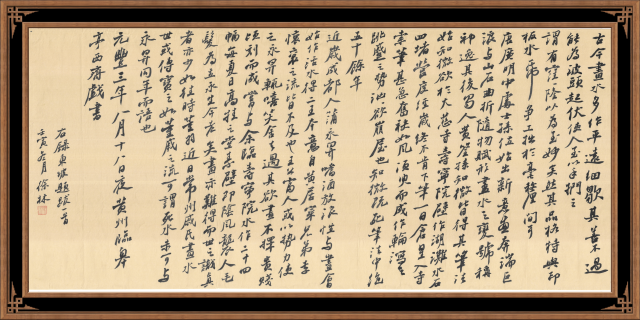 古今畫水多作平遠細皺其善不過
能為波頭起伏使人至以手捫之
謂有窪隆以為至妙矣然其品格特與印
板水紙爭工拙於毫釐間可
唐廣明中處士孫位始出新意畫奔湍巨
浪與山石曲折隨物賦形畫水之變號稱
神逸其後蜀人黃筌孫知微皆得其筆法
始知微欲於大慈寺壽寧院壁作湖灘水石
四堵營度經歲終不肯下筆一日倉皇入寺
索筆甚急奮袂如風須臾而成作輪瀉
跳蹙之勢洶欲崩屋也知微既死筆法中絕
五十餘年
近歲成都人蒲永昇嗜酒放浪性與畫會
始作活水得二孫本意自黃居寀兄弟李
懷袞之流皆不及也王公富人或以勢力使
之永昇輒嘻笑舍去遇其欲畫不擇貴賤
頃刻而成嘗與余臨壽寧院水作二十四
幅每夏日高掛之堂素壁即陰風襲人毛
髮為立永昇今老矣畫亦難得而世之識真
者亦少如往時董羽近日常州戚氏畫水
世或傳寶之如董戚之流可謂死水未可與
永昇同年而語也
元豐三年八月十八日夜黃州臨皋
亭西齋戲書
右錄東坡題跋一首
壬寅冬月徐林